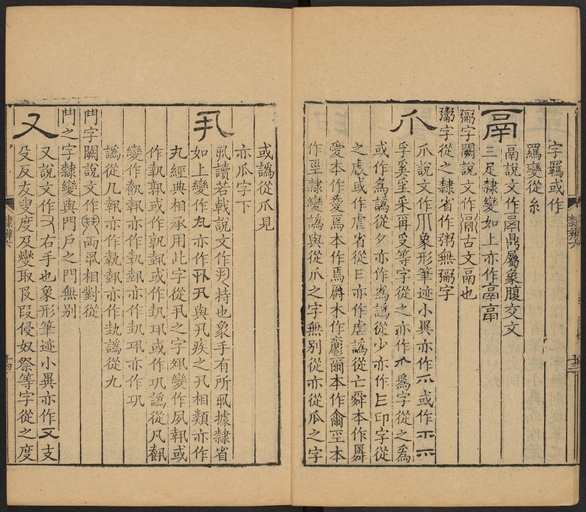 字羈或作
羈變從糸
鬲
鬲說文作鬲鼎屬象腹交文
三足隸變如上亦作鬲鬲
䰜字闕說文作䰜古文鬲也
鬻字從之隸省作粥無䰜字
爪
爪說文作爪象形筆迹小異亦作爫或作爫爫
孚奚采爯受等字從之亦作爫為字從之為
或作為譌從夕亦作為譌從少亦作彐印字從
之虐或作虐省從彐亦作虐譌從亡舜本作
愛本作本作爵本作爾本作本
作隸變譌與從爪之字無別從亦從瓜之字
或譌從爪見
亦瓜字下
丮
丮讀若戟說文作丮持也象手有所丮據隸省
如上變作丸亦作丮丮與丮疾之丮相類亦作
丸經典相承用此字從丮之字夙變作夙執或
作執孰或作孰巩或作巩譌從凡
變作執亦作執亦作執巩亦作巩
譌從几執亦作執執亦作執譌從九
鬥字闕說文作鬥兩丮相對從
鬥之字隸變與門戶之門無別
又
又說文作又右手也象形筆迹小異亦作又支
殳反友叟度及燮取叚侵奴祭等字從之度